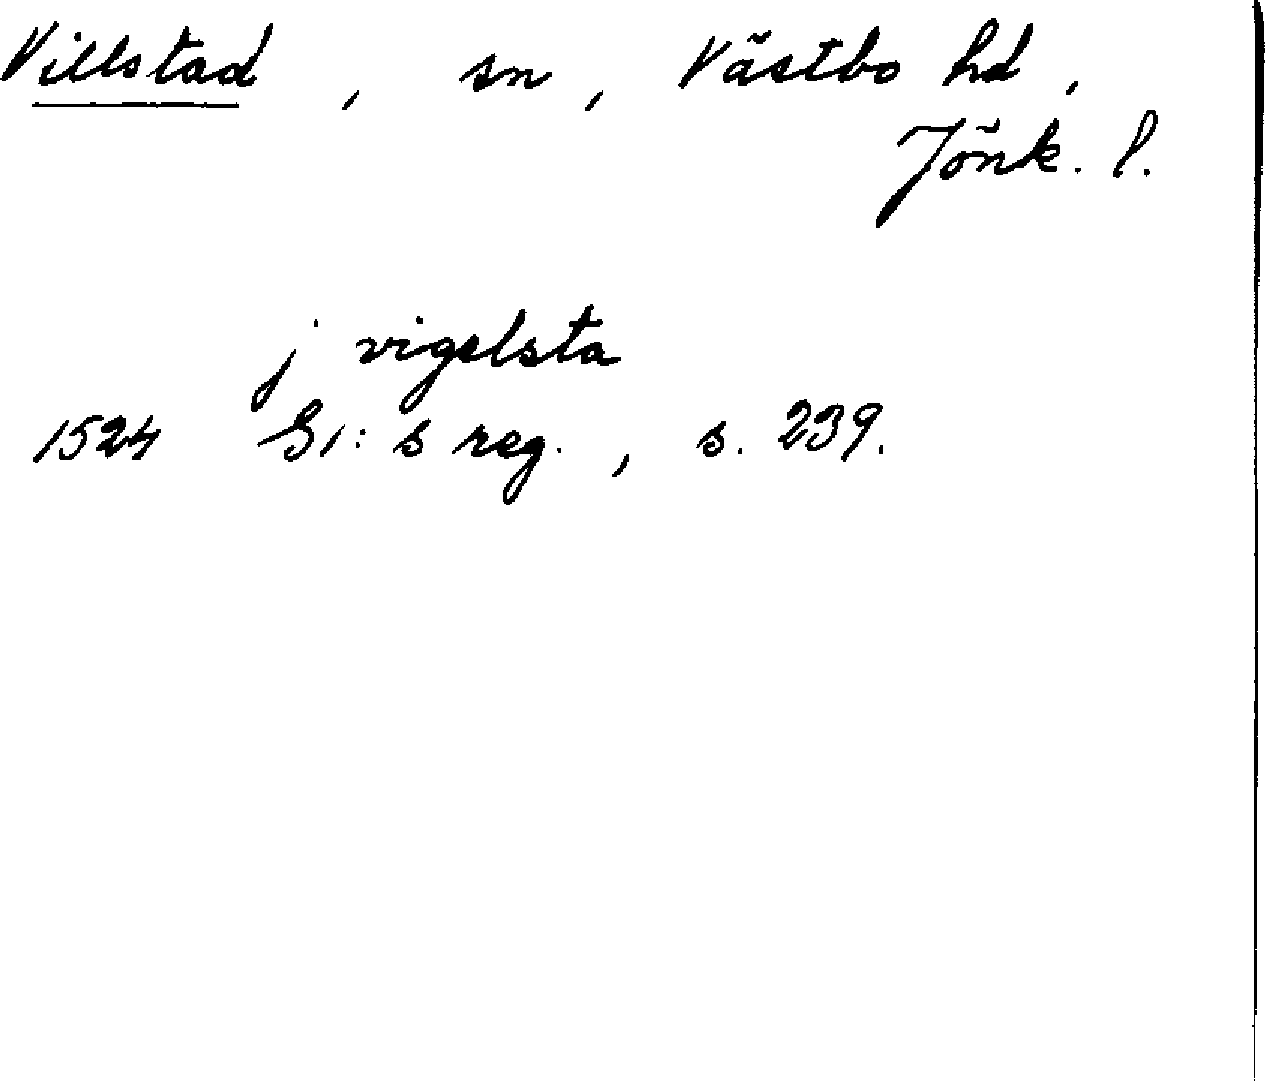 Villstad, sn, Västbo hd,
Jönk. l.
j vigelsta
1524 G1:s reg., s. 239.